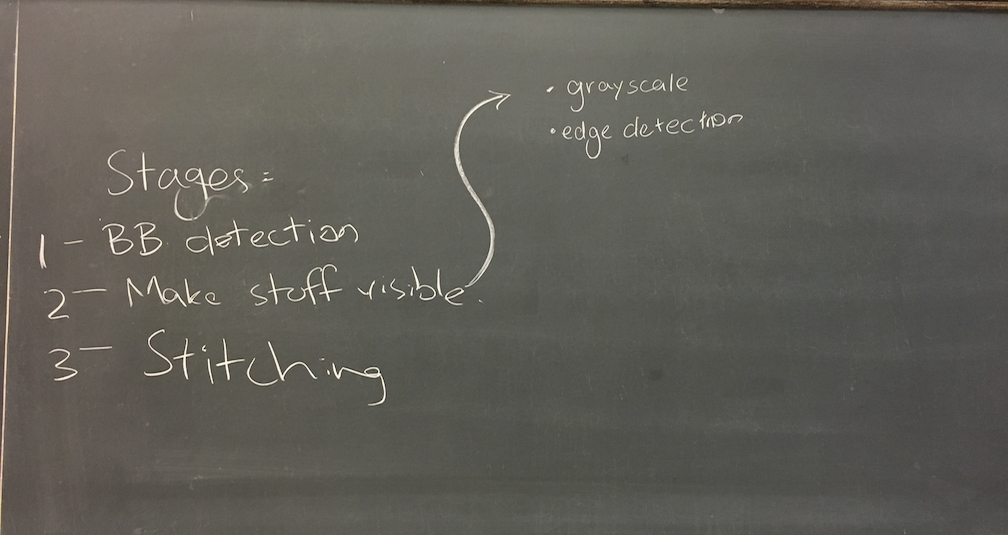 Stages:
1- BB detection
2- Make stuff visible.
3- Stitching
• grayscale
• edge detection